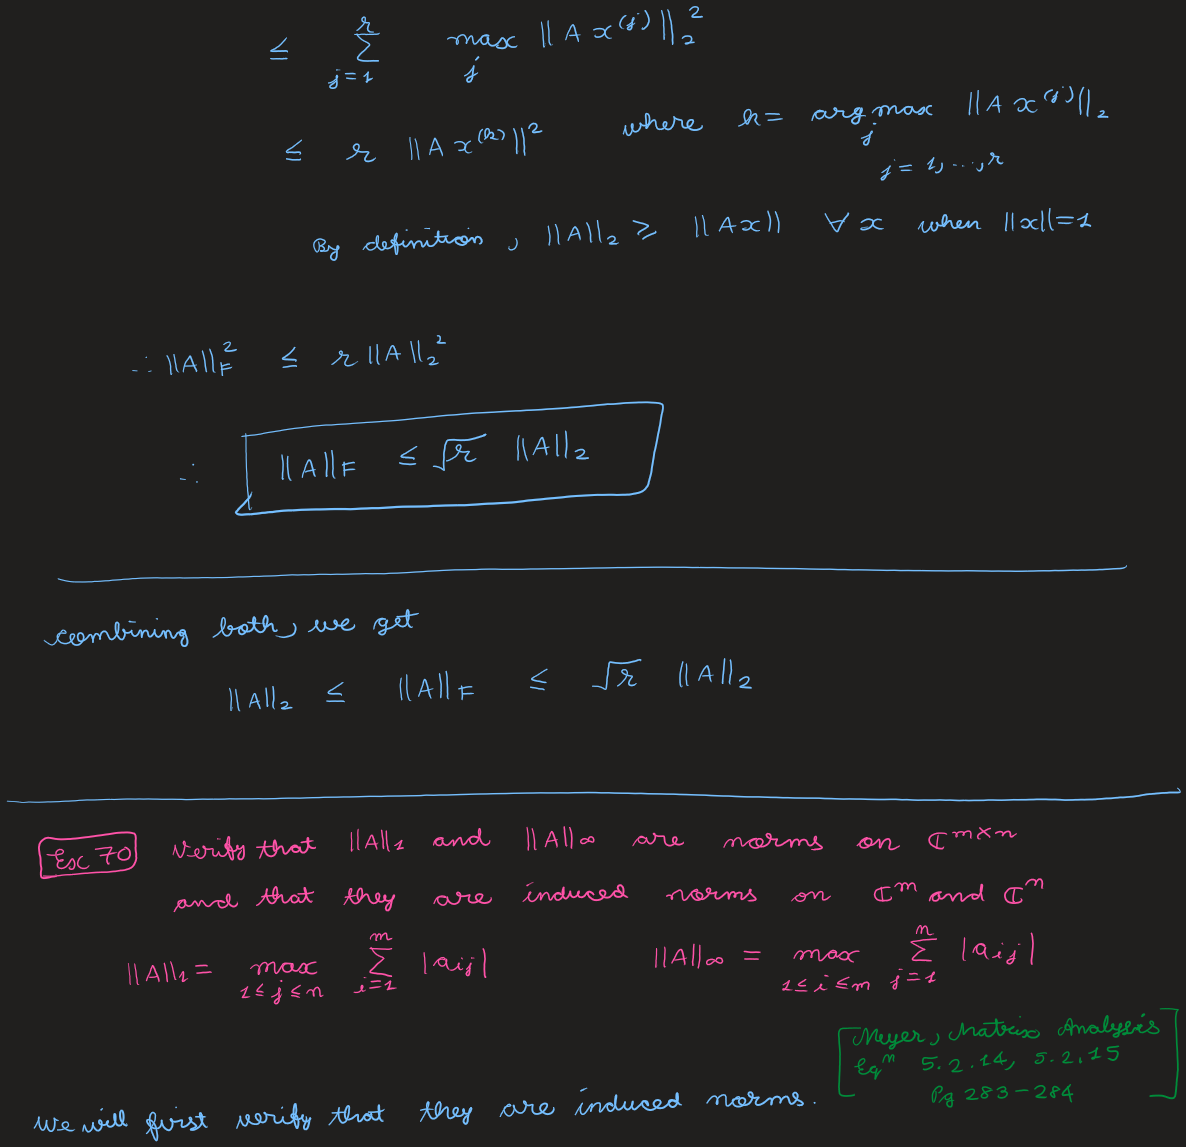 ≤ ∑_{j=1}^{r} max_j ||A x^{(j)}||_2^2
≤ r ||A x^{(k)}||^2 where k = arg max_j ||A x^{(j)}||_2
j = 1, ..., r
By definition, ||A||_2 ≥ ||Ax|| ∀ x when ||x||=1
∴ ||A||_F^2 ≤ r ||A||_2^2
∴ ||A||_F ≤ √r ||A||_2
combining both, we get
||A||_2 ≤ ||A||_F ≤ √r ||A||_2
Ex 70 Verify that ||A||_1 and ||A||_∞ are norms on ℂ^{m×n}
and that they are induced norms on ℂ^m and ℂ^n
||A||_1 = max_{1≤j≤n} ∑_{i=1}^{m} |a_{ij}| ||A||_∞ = max_{1≤i≤m} ∑_{j=1}^{n} |a_{ij}|
[Meyer, Matrix Analysis
Eq^n 5.2.14, 5.2.15
Pg 283-284]
we will first verify that they are induced norms.